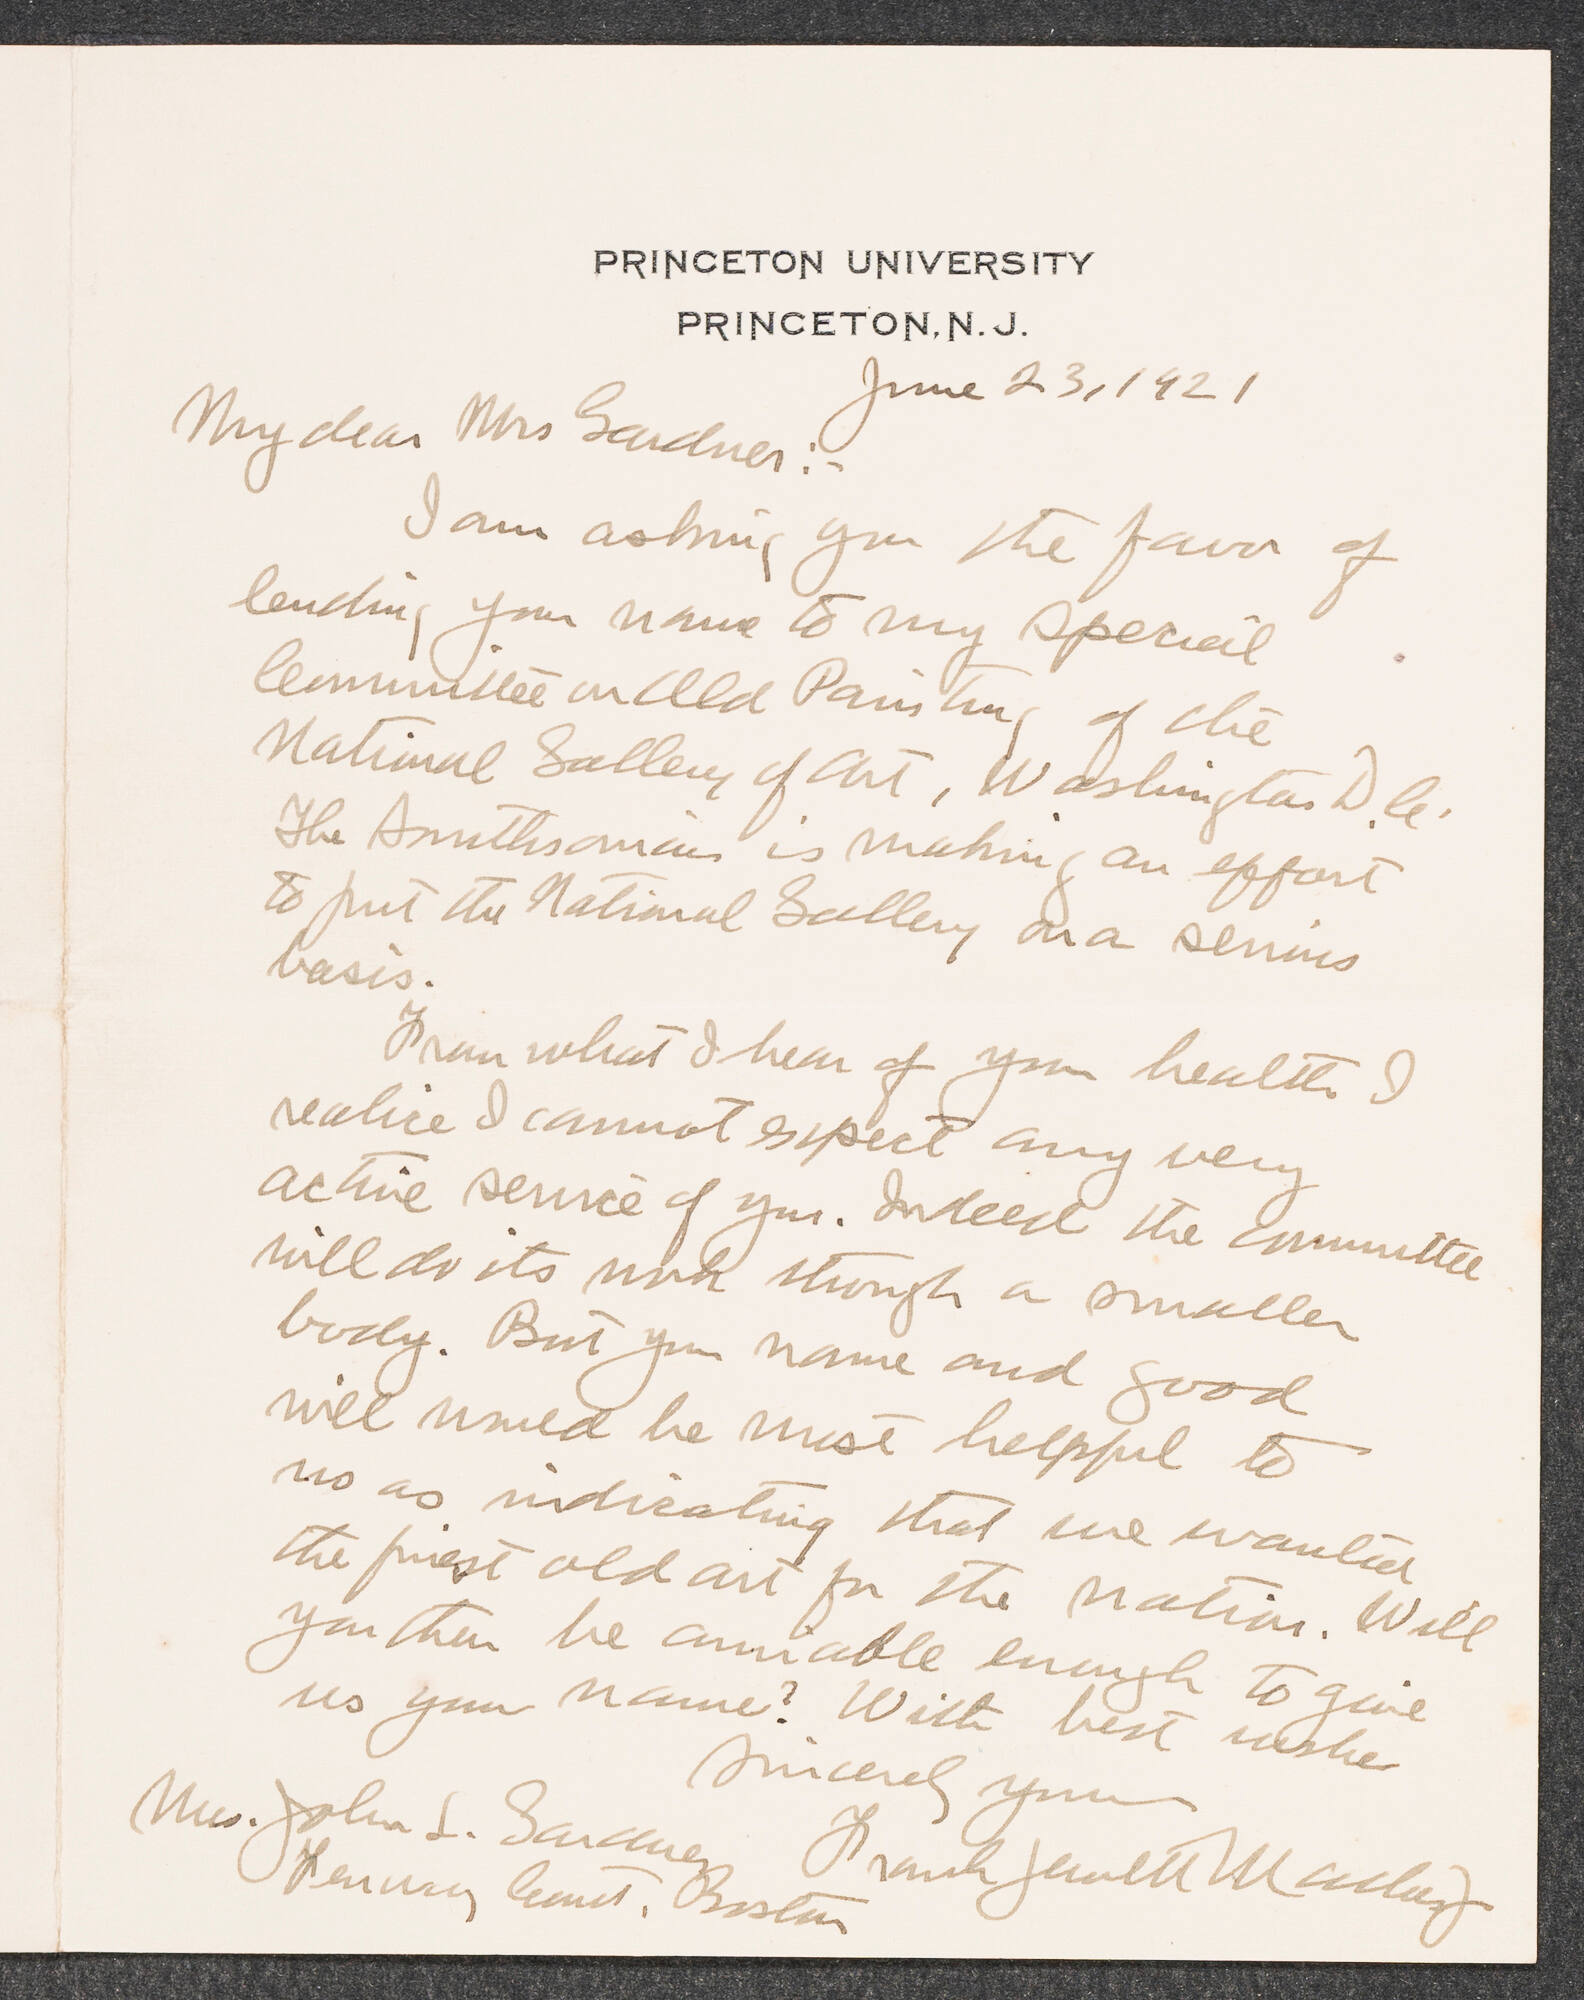 PRINCETON UNIVERSITY
PRINCETON, N. J.
June 23, 1921
My dear Mrs Gardner:-
I am asking you the favor of
lending your name to my special
Committee on Old Painting of the
National Gallery of Art, Washington D.C.
The Smithsonian is making an effort
to put the National Gallery on a serious
basis.
From what I hear of your health I
realize I cannot expect any very
active service of you. Indeed the committee
will do its work through a smaller
body. But your name and good
will would be most helpful to
us as indicating that we wanted
the finest old art for the nation. Will
you then be amiable enough to give
us your name? With best wishes
Sincerely yours
Frank Jewett Mather Jr
Mrs. John L. Gardner
Fenway Court, Boston